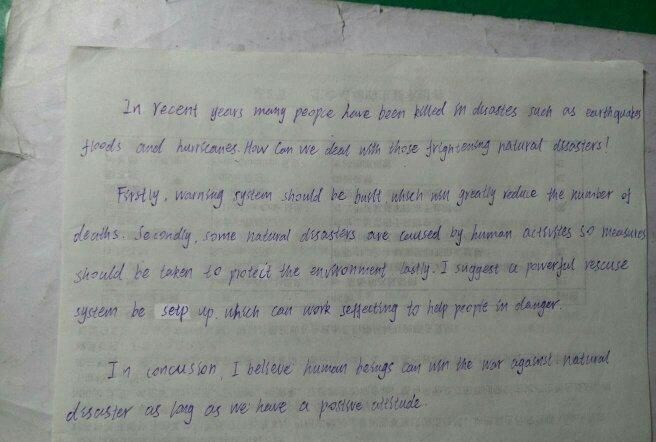 In recent years many people have been killed in disastes such as earthquakes
floods and hurricanes. How can we deal with those frightening natural disasters!
Firstly, warning system should be built, which will greatly reduce the number of
deaths. Secondly, some natural disasters are caused by human activities so measures
should be taken to protect the environment lastly. I suggest a powerful rescuse
system be setp up. which can work seffecting to help people in danger.
In concusion, I believe human beings can win the war against natural
disaster as long as we have a positive attitude.